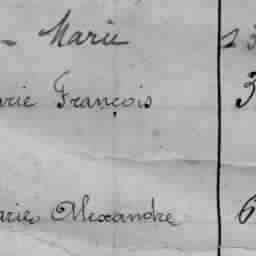 - Marie 23
arie François 3
arie Alexandre 6